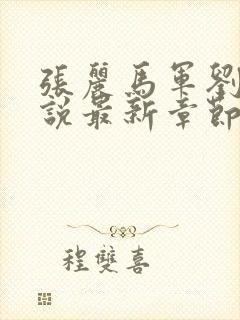 張麗馬軍劉
說最新章節
程雙喜